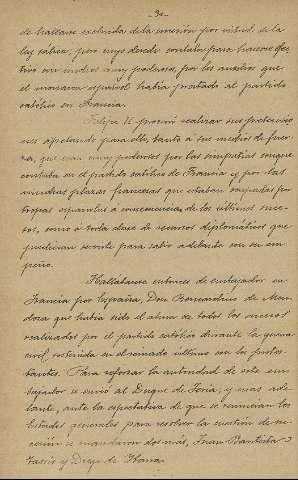 - 3 -
de hallarse excluida de la sucesión por virtud de la
ley sálica, pero cuyo derecho contaba para hacerse efec
tivo con medios muy poderosos, por los auxilios que
el monarca español había prestado al partido
católico en Francia.
Felipe II procuró realizar sus pretensio
nes apelando para ello, tanto á sus medios de fuer
za, que eran muy poderosos por las simpatías con que
contaba en el partido católico de Francia y por las
muchas plazas francesas que estaban ocupadas por
tropas españolas á consecuencia de los últimos suce
sos, como á toda clase de recursos diplomáticos que
pudieran servirle para salir adelante con su em
peño.
Hallábase entonces de embajador en
Francia por España, Don Bernardino de Men
doza que había sido el alma de todos los sucesos
realizados por el partido católico durante la guerra
civil sostenida en el reinado último con los protes
tantes. Para reforzar la autoridad de este em
bajador se envió al Duque de Feria; y mas ade
lante, ante la expectativa de que se reunieran los
Estados generales para resolver la cuestión de su
cesión se mandaron dos más, Juan Bautista
Tassis y Diego de Ibarra.